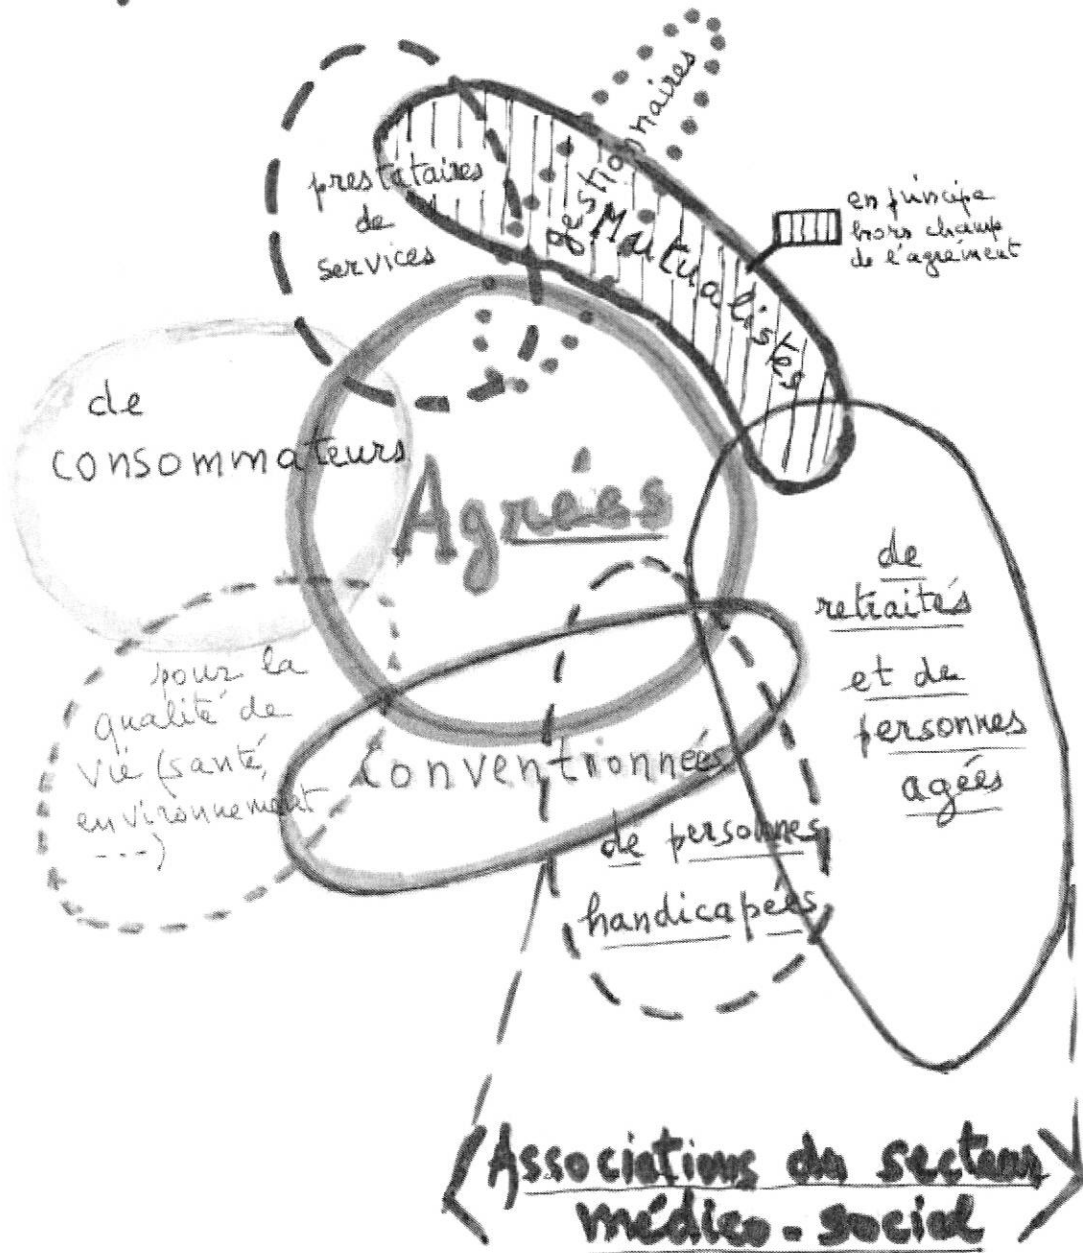 gestionnaires
prestataires
de
services
Mutualistes
en principe
hors champ
de l'agrément
de
consommateurs
Agréés
de
retraités
et de
personnes
agées
pour la
qualité de
vie (santé,
environnement
---)
Conventionnées
de personnes
handicapées
Associations du secteur
médico-social